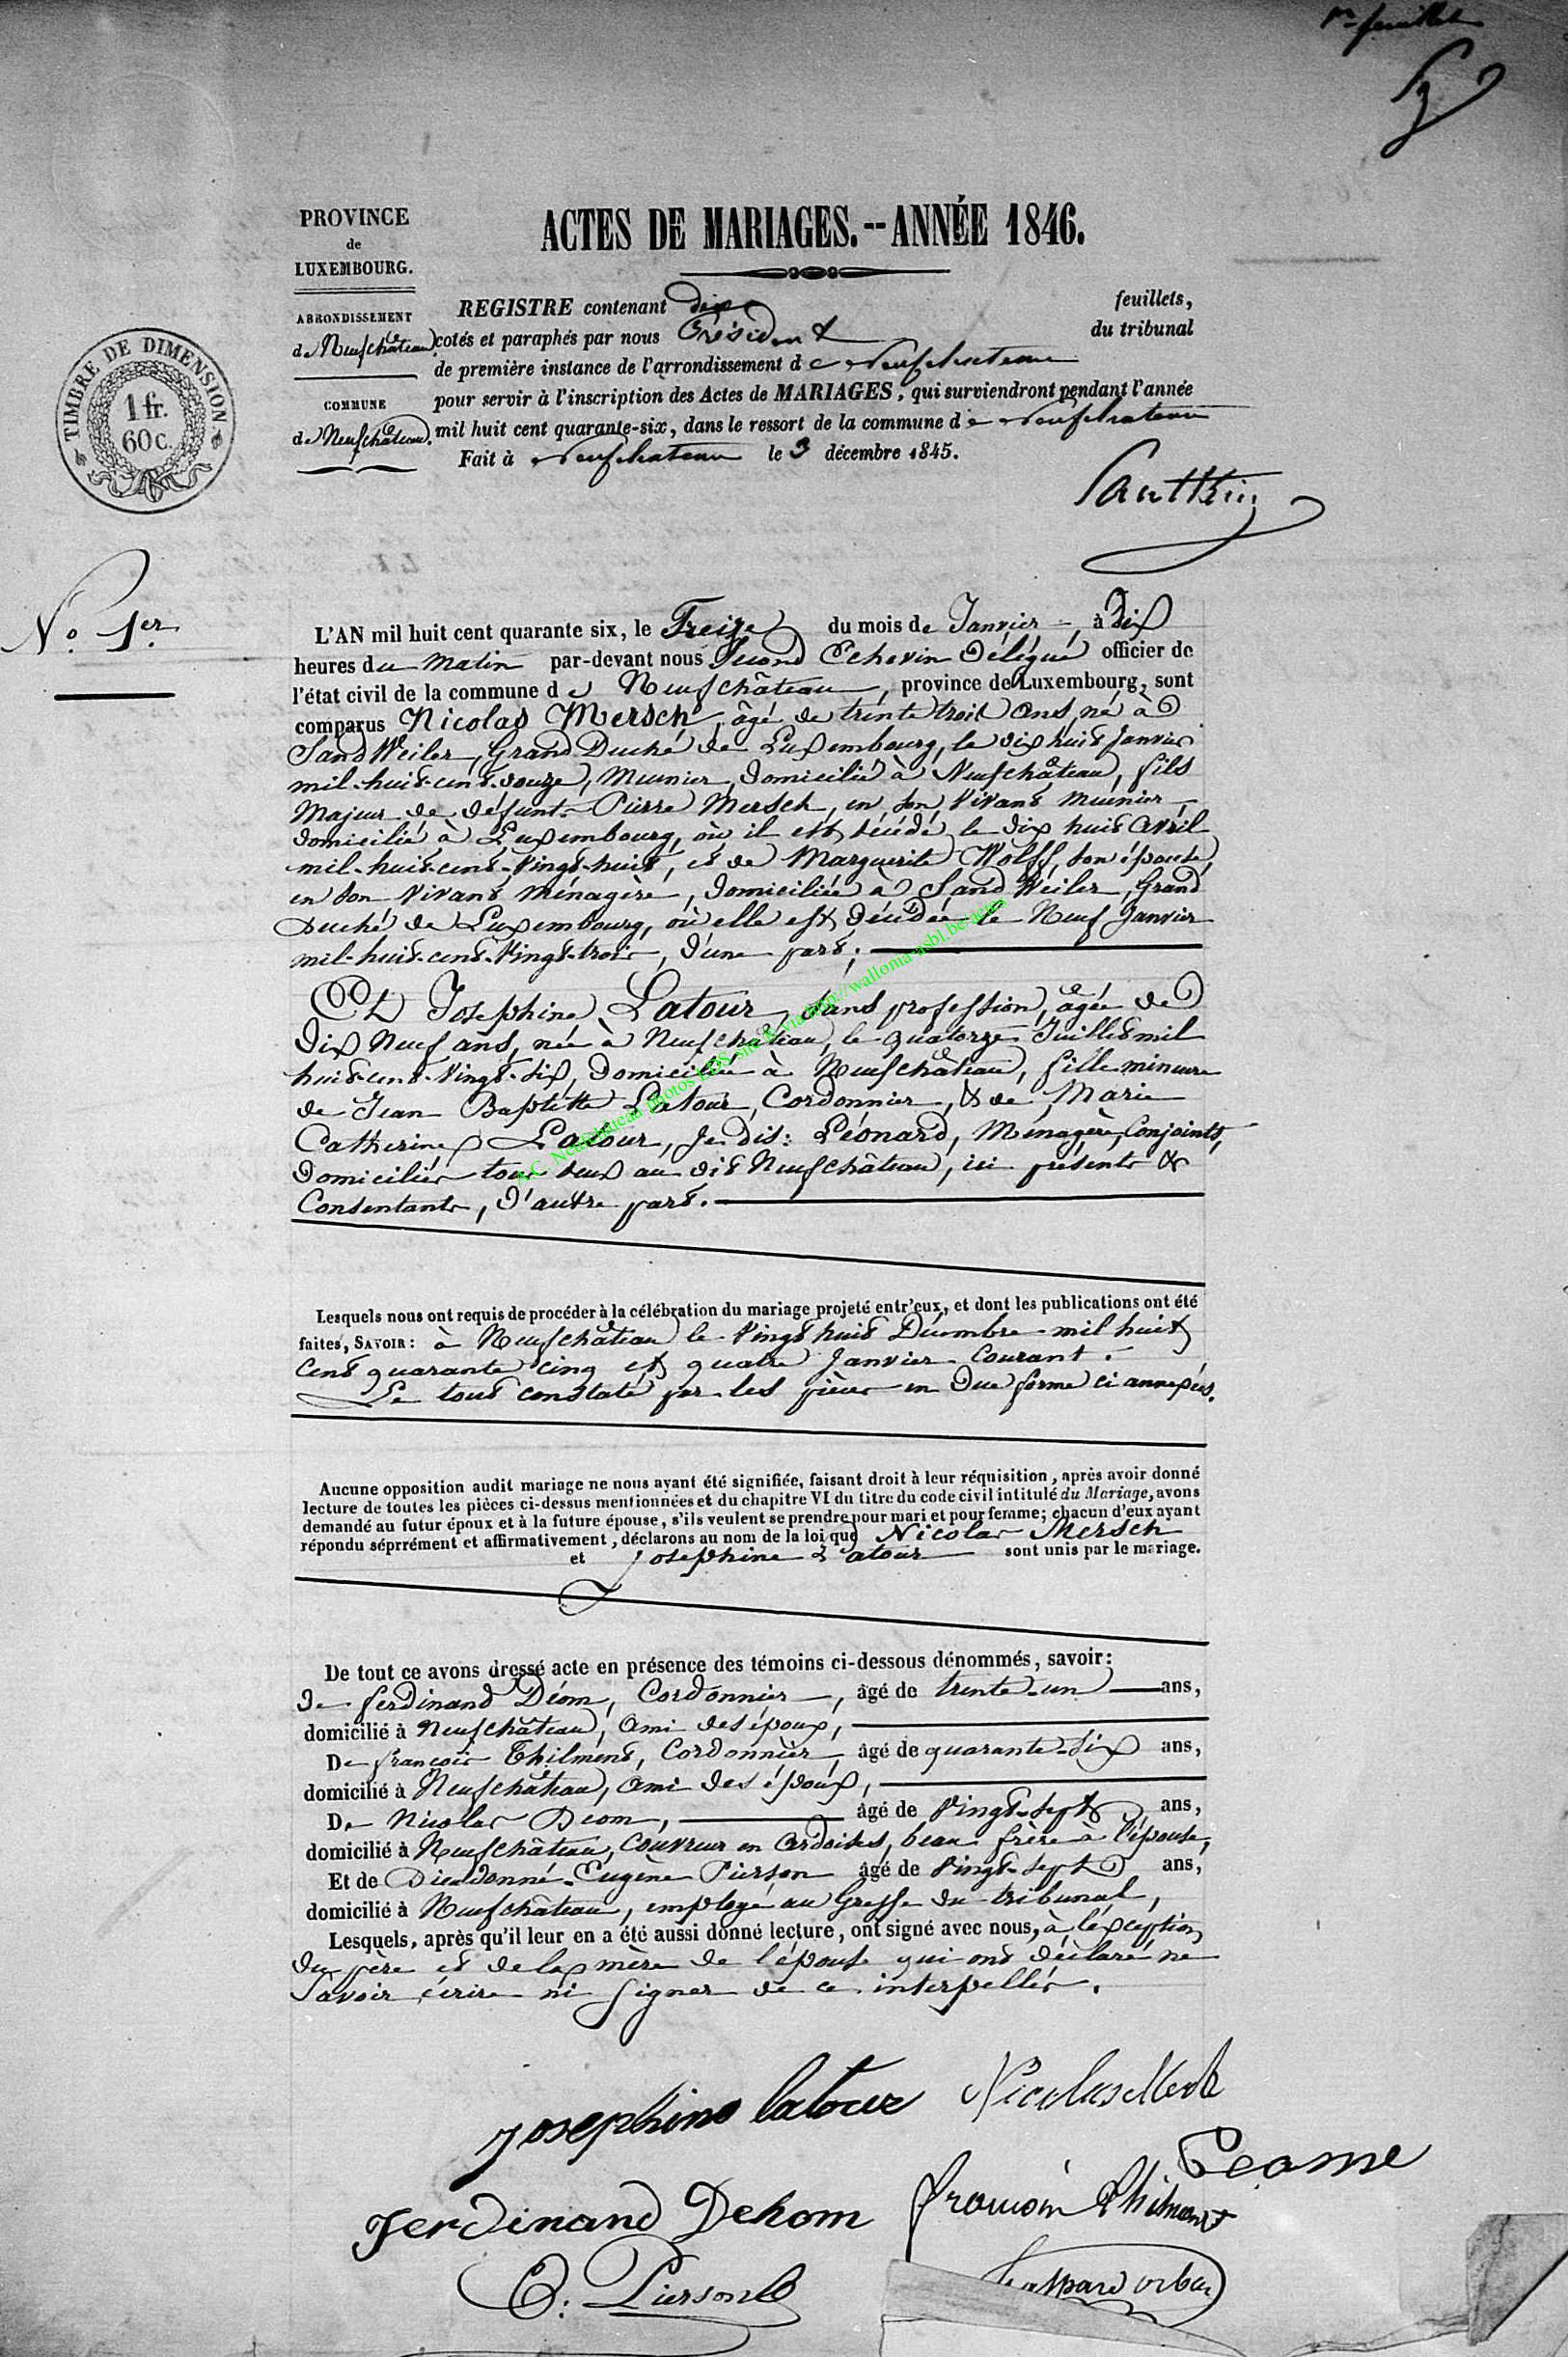 1er feuillet
PROVINCE
de
LUXEMBOURG.
ARRONDISSEMENT
de Neufchâteau
COMMUNE
de Neufchâteau.
TIMBRE DE DIMENSION
1 fr.
60 c.
ACTES DE MARIAGES.--ANNÉE 1846.
REGISTRE contenant dix feuillets,
cotés et paraphés par nous Président du tribunal
de première instance de l'arrondissement de Neufchateau
pour servir à l'inscription des Actes de MARIAGES, qui surviendront pendant l'année
mil huit cent quarante-six, dans le ressort de la commune de Neufchateau
Fait à Neufchateau le 3 décembre 1845.
No. 1er.
L'AN mil huit cent quarante six, le Treize du mois de Janvier, à Dix
heures du Matin par-devant nous Second Echevin Délégué officier de
l'état civil de la commune de Neufchâteau, province de Luxembourg, sont
comparus Nicolas Mersch, âgé de trente trois Ans, né à
Sand Weiler, Grand Duché de Luxembourg, le dix huit Janvier
mil-huit-cent-douze, Meunier, domicilié à Neufchâteau, fils
Majeur de défunt Pierre Mersch, en son vivant meunier,
domicilié à Luxembourg, où il est décédé le dix huit Avril
mil-huit-cent-vingt-huit, et de Marguerite Wolff, son épouse,
en son vivant ménagère, domiciliée à Sand Weiler, Grand
Duché de Luxembourg, où elle est décédée le Neuf Janvier
mil-huit-cent-vingt-trois, d'une part;
Et Josephine Latour, sans profession, âgée de
Dix Neuf ans, née à Neufchâteau, le quatorze Juillet mil
huit-cent-vingt-six, domiciliée à Neufchâteau, fille mineure
de Jean Baptiste Latour, Cordonnier, & de Marie
Catherine Latour, Je dis: Léonard, Ménagère, Conjoints,
domiciliés tous deux au dit Neufchâteau, ici présents &
Consentants, d'autre part.
A.C. Neufchâteau photos LDS site & via http://wallonia-asbl.be/actes
Lesquels nous ont requis de procéder à la célébration du mariage projeté entr'eux, et dont les publications ont été
faites, SAVOIR: à Neufchâteau le vingt huit Décembre mil huit
Cent quarante cinq et quatre Janvier Courant.
Le tout constaté par les pièces en due forme ci annexées.
Aucune opposition audit mariage ne nous ayant été signifiée, faisant droit à leur réquisition, après avoir donné
lecture de toutes les pièces ci-dessus mentionnées et du chapitre VI du titre du code civil intitulé du Mariage, avons
demandé au futur époux et à la future épouse, s'ils veulent se prendre pour mari et pour femme; chacun d'eux ayant
répondu séprrément et affirmativement, déclarons au nom de la loi que Nicolas Mersch
et Josephine Latour sont unis par le mariage.
De tout ce avons dressé acte en présence des témoins ci-dessous dénommés, savoir:
de ferdinand Déom, Cordonnier, âgé de trente-un ans,
domicilié à Neufchâteau, Ami des époux,
De françois Thilment, Cordonnier, âgé de quarante-six ans,
domicilié à Neufchâteau, Ami des époux,
De Nicolas Deom, âgé de vingt-sept ans,
domicilié à Neufchâteau, Couvreur en Ardoises, beau frère à l'épouse,
Et de Dieudonné-Eugène Pierson âgé de vingt-sept ans,
domicilié à Neufchâteau, employé au Greffe du tribunal,
Lesquels, après qu'il leur en a été aussi donné lecture, ont signé avec nous, à l'exception
du père et de la mère de l'épouse qui ont déclaré ne
Savoir écrire ni signer de ce interpellés.
Josephine latour
Ferdinand Dehom